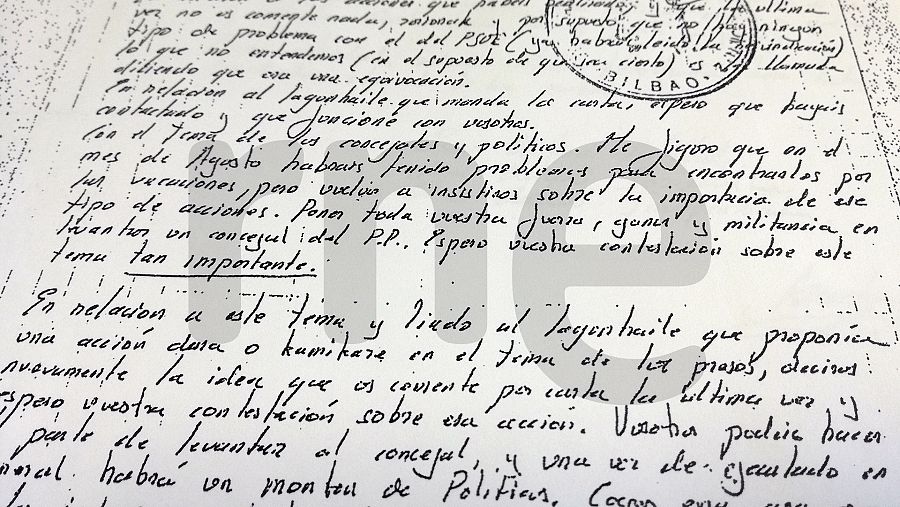 ver no os comente nada, y por supuesto que no hay ningún
tipo de problema con el del PSOE (ya habréis leído la reivindicación)
lo que no entendemos (en el supuesto de que sea cierto) es la llamada
diciendo que era una equivocación.
BILBAO
En relación al lagunhaile que manda la carta, espero que hayais
contactado y que funcione con vosotros.
Con el tema de los concejales y políticos. Me figuro que en el
mes de Agosto habrais tenido problemas para encontrarlos por
las vacaciones, pero vuelvo a insistiros sobre la importacia de ese
tipo de acciones. Poner toda vuestra fuerza, ganas y militancia en
levantar un concejal del P.P.. Espero vuestra contestación sobre este
tema tan importante.
rne
En relacion a este tema, y liado al lagunhaile que proponía
una acción dura o kamikaze en el tema de los presos, deciros
nuevamente la idea que os comente por carta la ultima vez y
espero vuestra contestación sobre esa acción. Vosotros podéis hacer
parte de levantar al concejal, y una vez de ejecutado en
habrá un montón de Politicos.